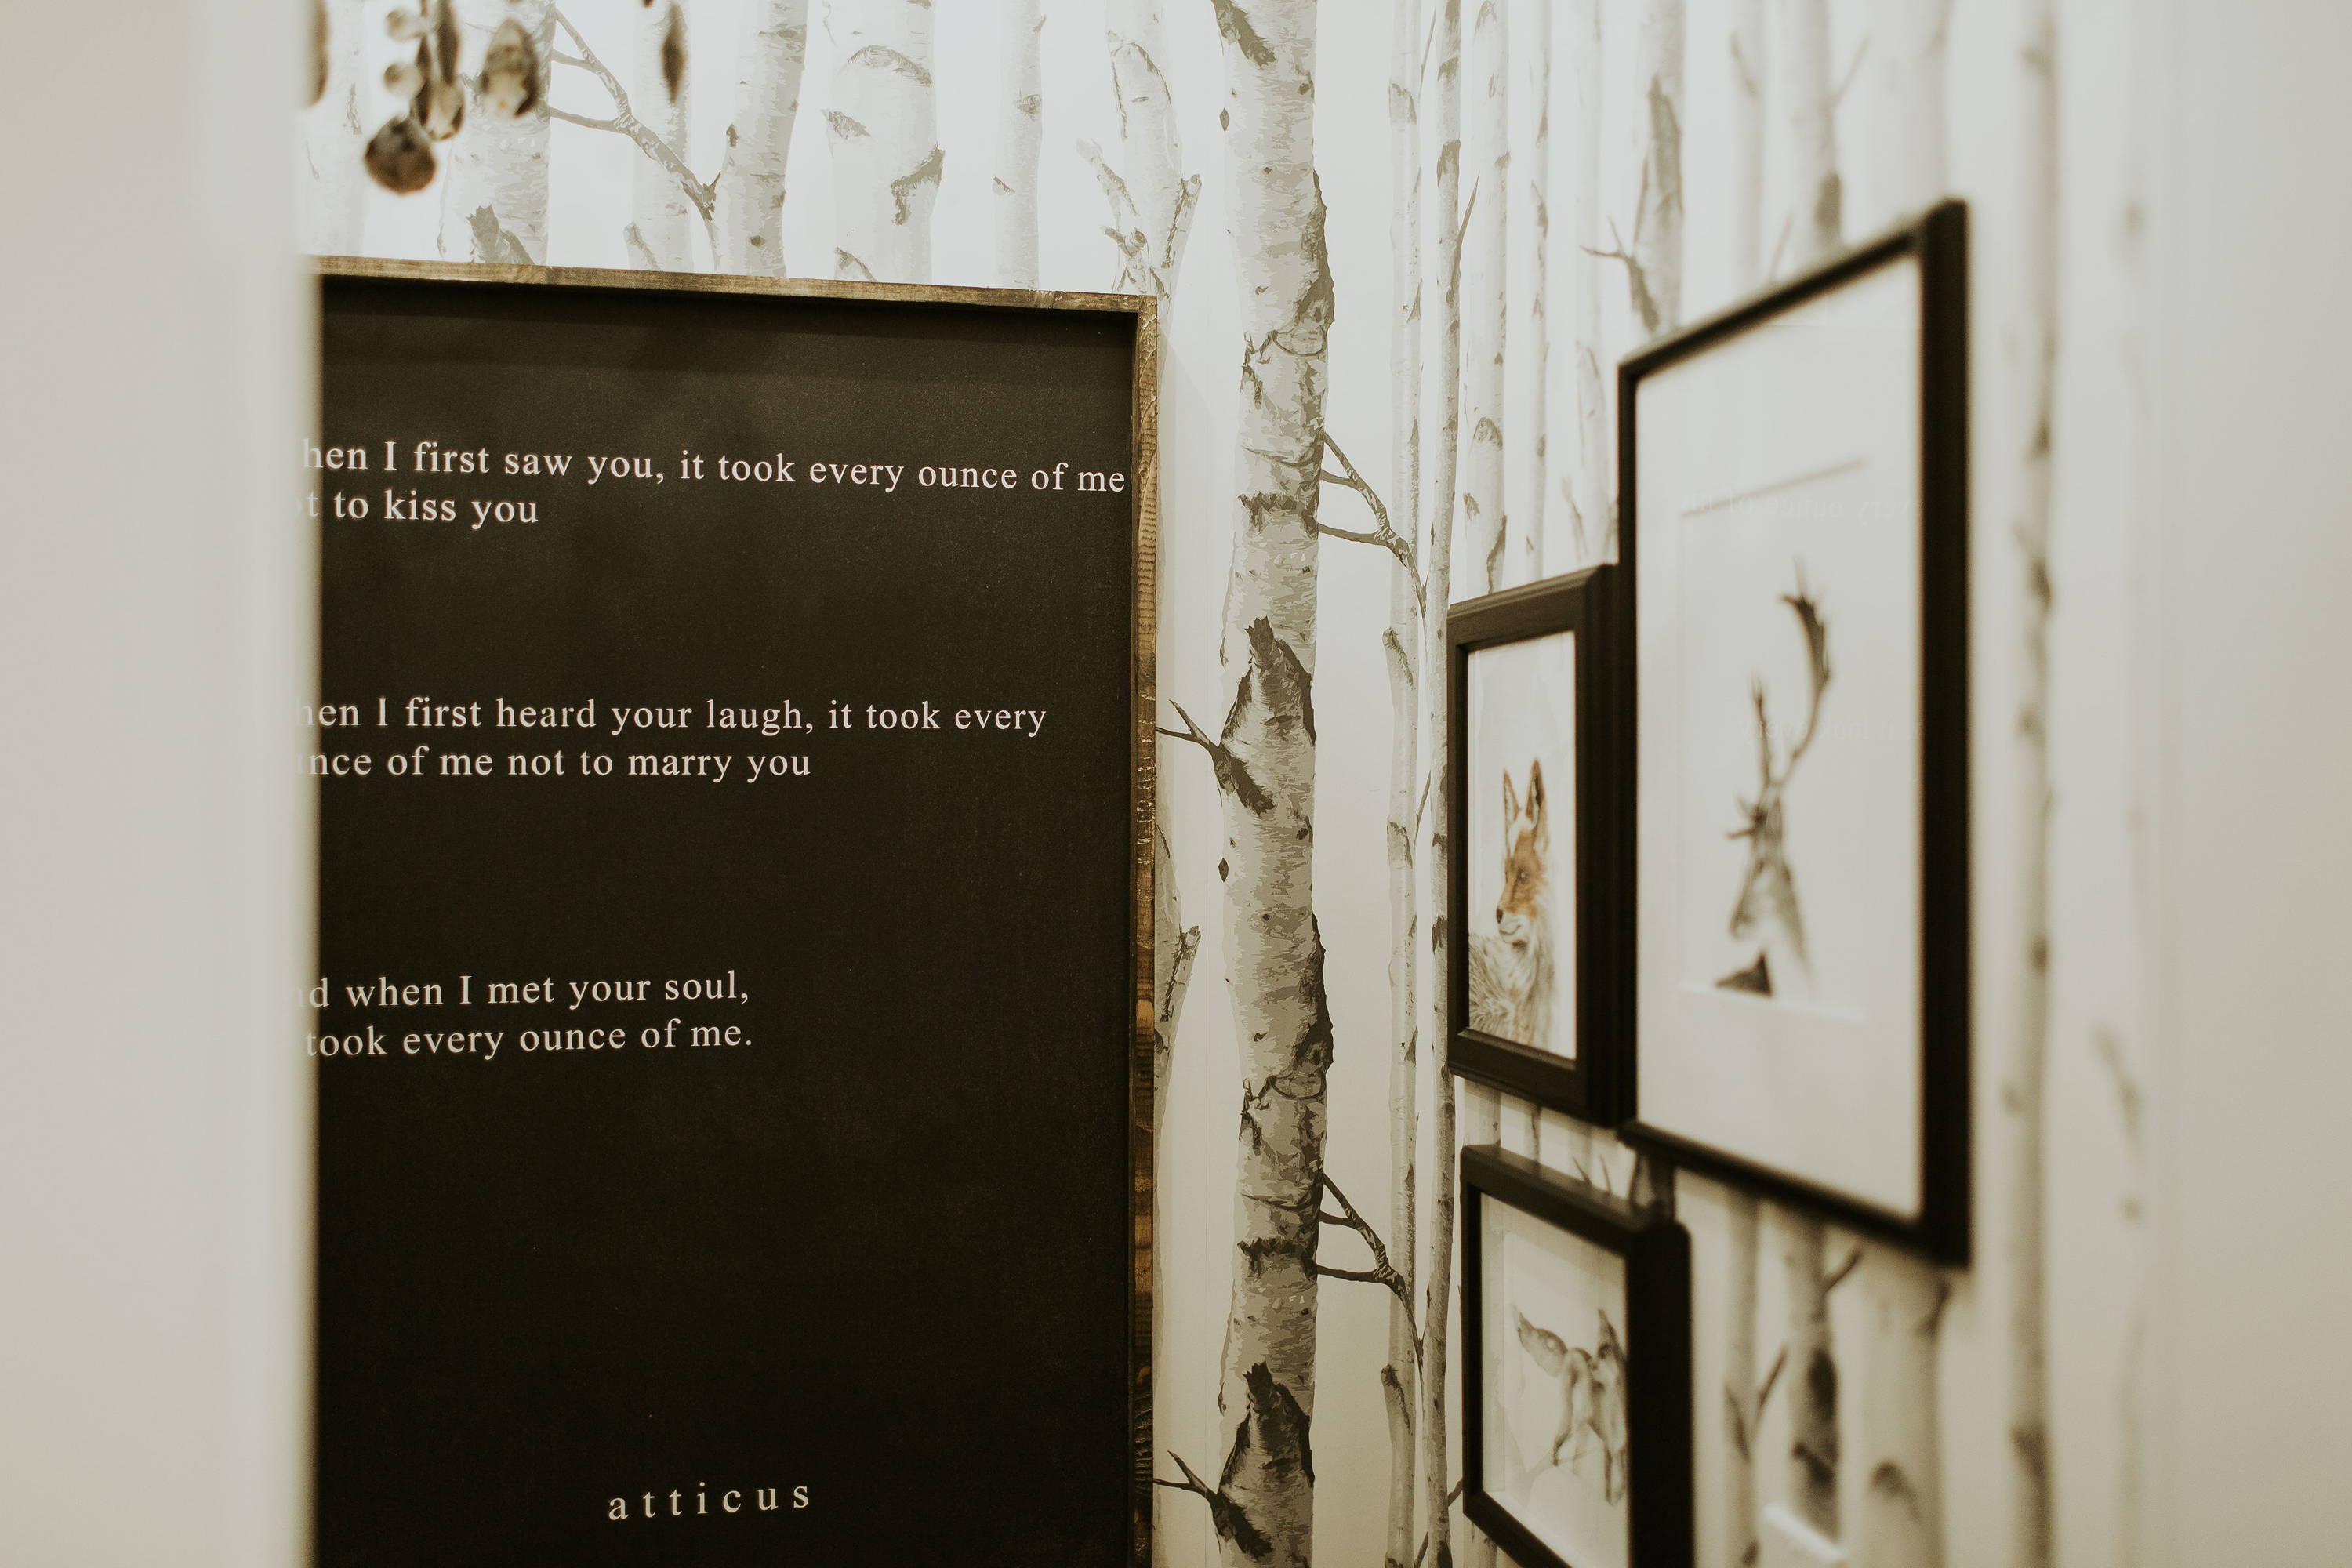 hen I first saw you, it took every ounce of me
t to kiss you
hen I first heard your laugh, it took every
nce of me not to marry you
d when I met your soul,
took every ounce of me.
atticus